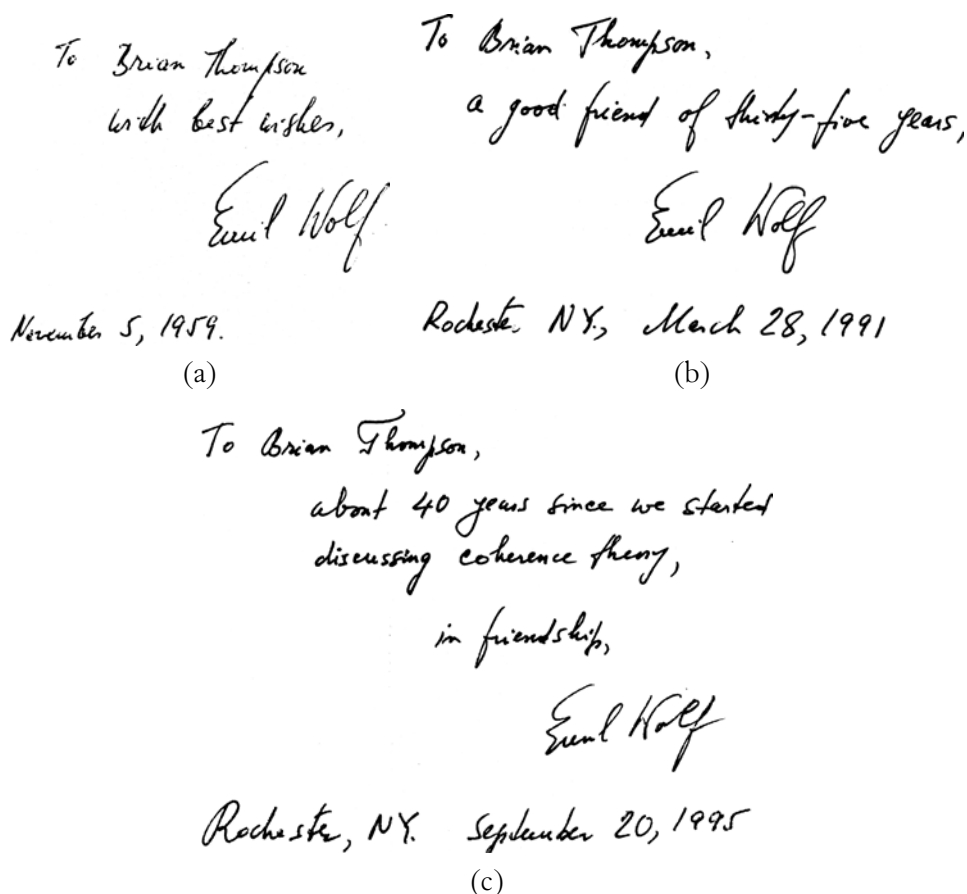 To Brian Thompson
with best wishes,
Emil Wolf
November 5, 1959.
(a)
To Brian Thompson,
a good friend of thirty-five years,
Emil Wolf
Rochester, NY., March 28, 1991
(b)
To Brian Thompson,
about 40 years since we started
discussing coherence theory,
in friendship,
Emil Wolf
Rochester, NY. September 20, 1995
(c)